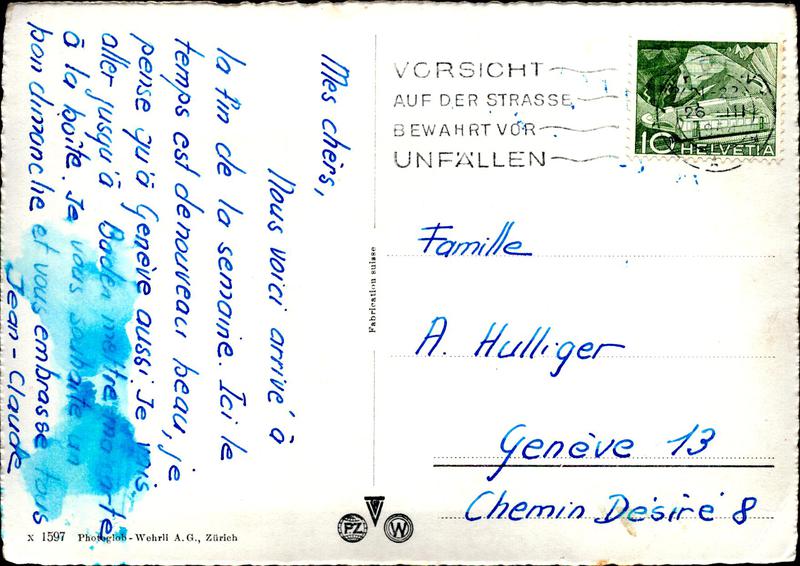 Mes chèrs,
Nous voici arrivé à
la fin de la semaine. Ici le
temps est de nouveau beau, je
pense qu'à Genève aussi. Je vais
aller jusqu'à Baden mettre ma carte
à la boîte. Je vous souhaite un
bon dimanche et vous embrasse tous
Jean-Claude
VORSICHT
AUF DER STRASSE
BEWAHRT VOR
UNFÄLLEN
10 HELVETIA
Famille
A. Hulliger
Genève 13
Chemin Désiré 8
Fabrication suisse
PZ
W
X 1597 Photoglob-Wehrli A.G., Zürich